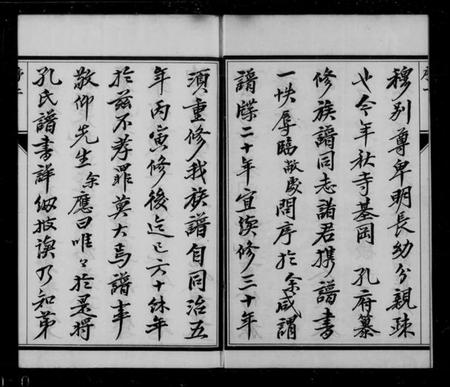 穆别尊卑明長幼分親疎
也今年秋寺基岡 孔府纂
修族譜同志諸君携譜書
一帙辱臨敝處問序於余咸謂
譜牒二十年宜續修三十年
須重修我族譜自同治五
年丙寅修後迄已六十餘年
於兹不孝罪莫大焉譜事
敬仰先生余應曰唯〻於是將
孔氏譜書詳細披誤乃知弟